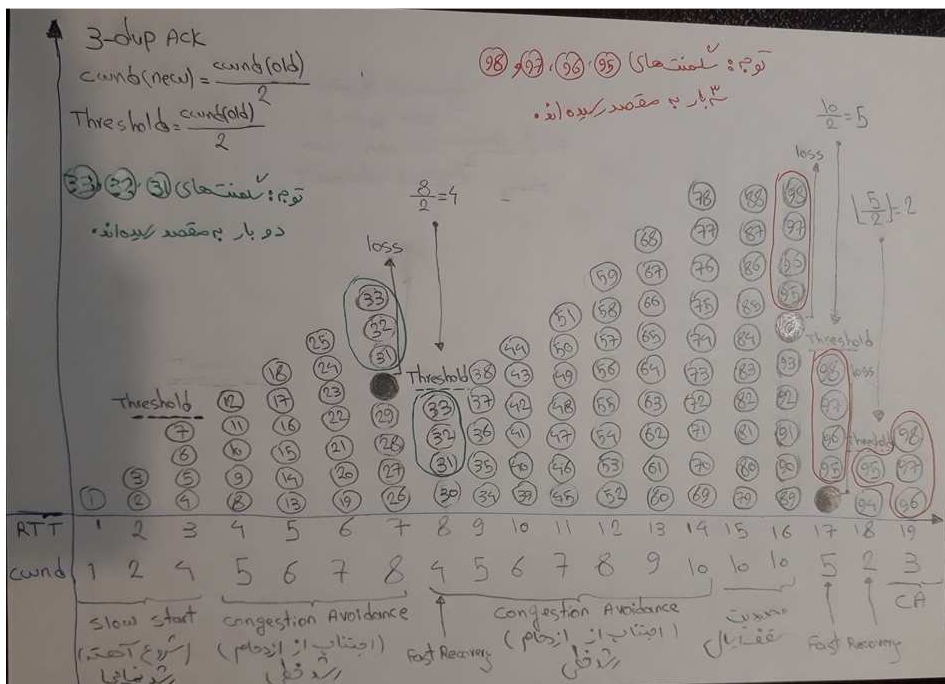 3-dup Ack
cwnd(new) = cwnd(old) / 2
Threshold = cwnd(old) / 2
توجه: سگمنت‌های 31، 32، 33
دو بار به مقصد رسیده‌اند.
توجه: سگمنت‌های 95، 96، 97 و 98
سه بار به مقصد رسیده‌اند.
8/2 = 4
10/2 = 5
⌊5/2⌋ = 2
loss
loss
loss
Threshold
Threshold
Threshold
Threshold
1
3
2
7
6
5
4
12
11
10
9
8
18
17
16
15
14
13
25
24
23
22
21
20
19
33
32
31
29
28
27
26
33
32
31
30
38
37
36
35
34
44
43
42
41
40
39
51
50
49
48
47
46
45
59
58
57
56
55
54
53
52
68
67
66
65
64
63
62
61
60
78
77
76
75
74
73
72
71
70
69
88
87
86
85
84
83
82
81
80
79
98
97
96
95
93
92
91
90
89
98
97
96
95
95
94
98
97
96
RTT 1 2 3 4 5 6 7 8 9 10 11 12 13 14 15 16 17 18 19
cwnd 1 2 4 5 6 7 8 4 5 6 7 8 9 10 10 10 5 2 3
Slow start
(شروع آهسته)
رشد نمایی
Congestion Avoidance
(اجتناب از ازدحام)
رشد خطی
Fast Recovery
Congestion Avoidance
(اجتناب از ازدحام)
رشد خطی
محدودیت
Fast Recovery
CA